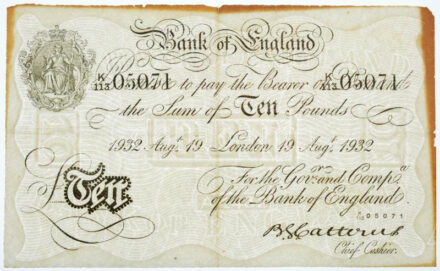 Bank of England
K/113 05071 K/113 05071
to pay the Bearer on
the Sum of Ten Pounds
1932 Augt. 19 London 19 Augt. 1932
For the Govr. and Compa.
of the Bank of England.
£Ten
K/113 05071
B.G. Catterns
Chief Cashier.